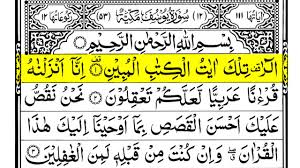 اٰيَاتُهَا ١١١ (١٢) سُوْرَةُ يُوْسُفَ مَكِّيَّةٌ (٥٣) رُكُوْعَاتُهَا ١٢
بِسْمِ اللّٰهِ الرَّحْمٰنِ الرَّحِيْمِ
الٓرٰ ۫ تِلْكَ اٰيٰتُ الْكِتٰبِ الْمُبِيْنِ ۟۱ اِنَّاۤ اَنْزَلْنٰهُ
قُرْءٰنًا عَرَبِيًّا لَّعَلَّكُمْ تَعْقِلُوْنَ ۟۲ نَحْنُ نَقُصُّ
عَلَيْكَ اَحْسَنَ الْقَصَصِ بِمَاۤ اَوْحَيْنَاۤ اِلَيْكَ هٰذَا
الْقُرْاٰنَ ۖ وَاِنْ كُنْتَ مِنْ قَبْلِهٖ لَمِنَ الْغٰفِلِيْنَ ۟۳